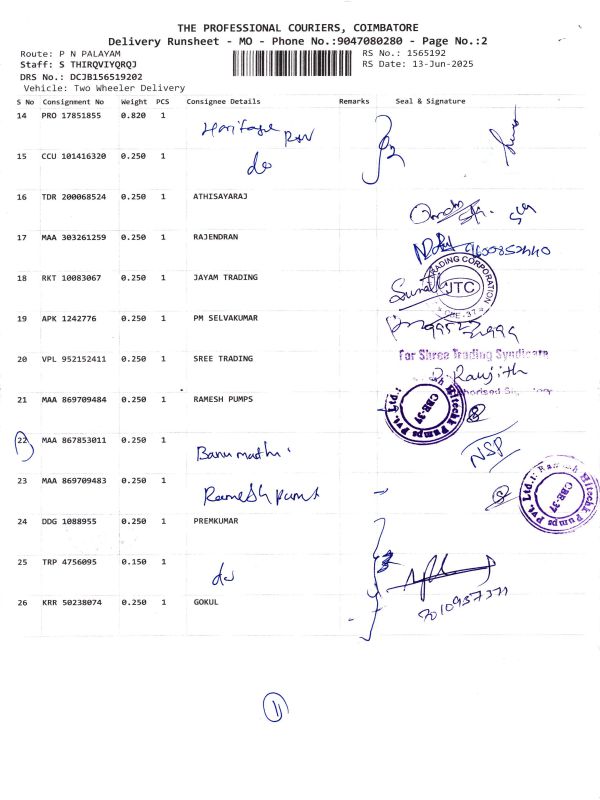 THE PROFESSIONAL COURIERS, COIMBATORE
Delivery Runsheet - MO - Phone No.:9047080280 - Page No.:2
Route: P N PALAYAM
RS No.: 1565192
Staff: S THIRQVIYQRQJ
RS Date: 13-Jun-2025
DRS No.: DCJB156519202
Vehicle: Two Wheeler Delivery
S No Consignment No Weight PCS Consignee Details Remarks Seal & Signature
14 PRO 17851855 0.820 1 Heritage
15 CCU 101416320 0.250 1 do
16 TDR 200068524 0.250 1 ATHISAYARAJ
17 MAA 303261259 0.250 1 RAJENDRAN
18 RKT 10083067 0.250 1 JAYAM TRADING
TRADING CORPORATION JTC CBE-37
19 APK 1242776 0.250 1 PM SELVAKUMAR
20 VPL 952152411 0.250 1 SREE TRADING
For Shree Trading Syndicate
Ranjith
21 MAA 869709484 0.250 1 RAMESH PUMPS
Hitechh Pumps Pvt. Ltd. CBE-37
22 MAA 867853011 0.250 1 Banumathi NSP
23 MAA 869709483 0.250 1 Ramesh pumps
Ramesh Hitechh Pumps Pvt. Ltd. CBE-37
24 DDG 1088955 0.250 1 PREMKUMAR
25 TRP 4756095 0.150 1 do
26 KRR 50238074 0.250 1 GOKUL
11